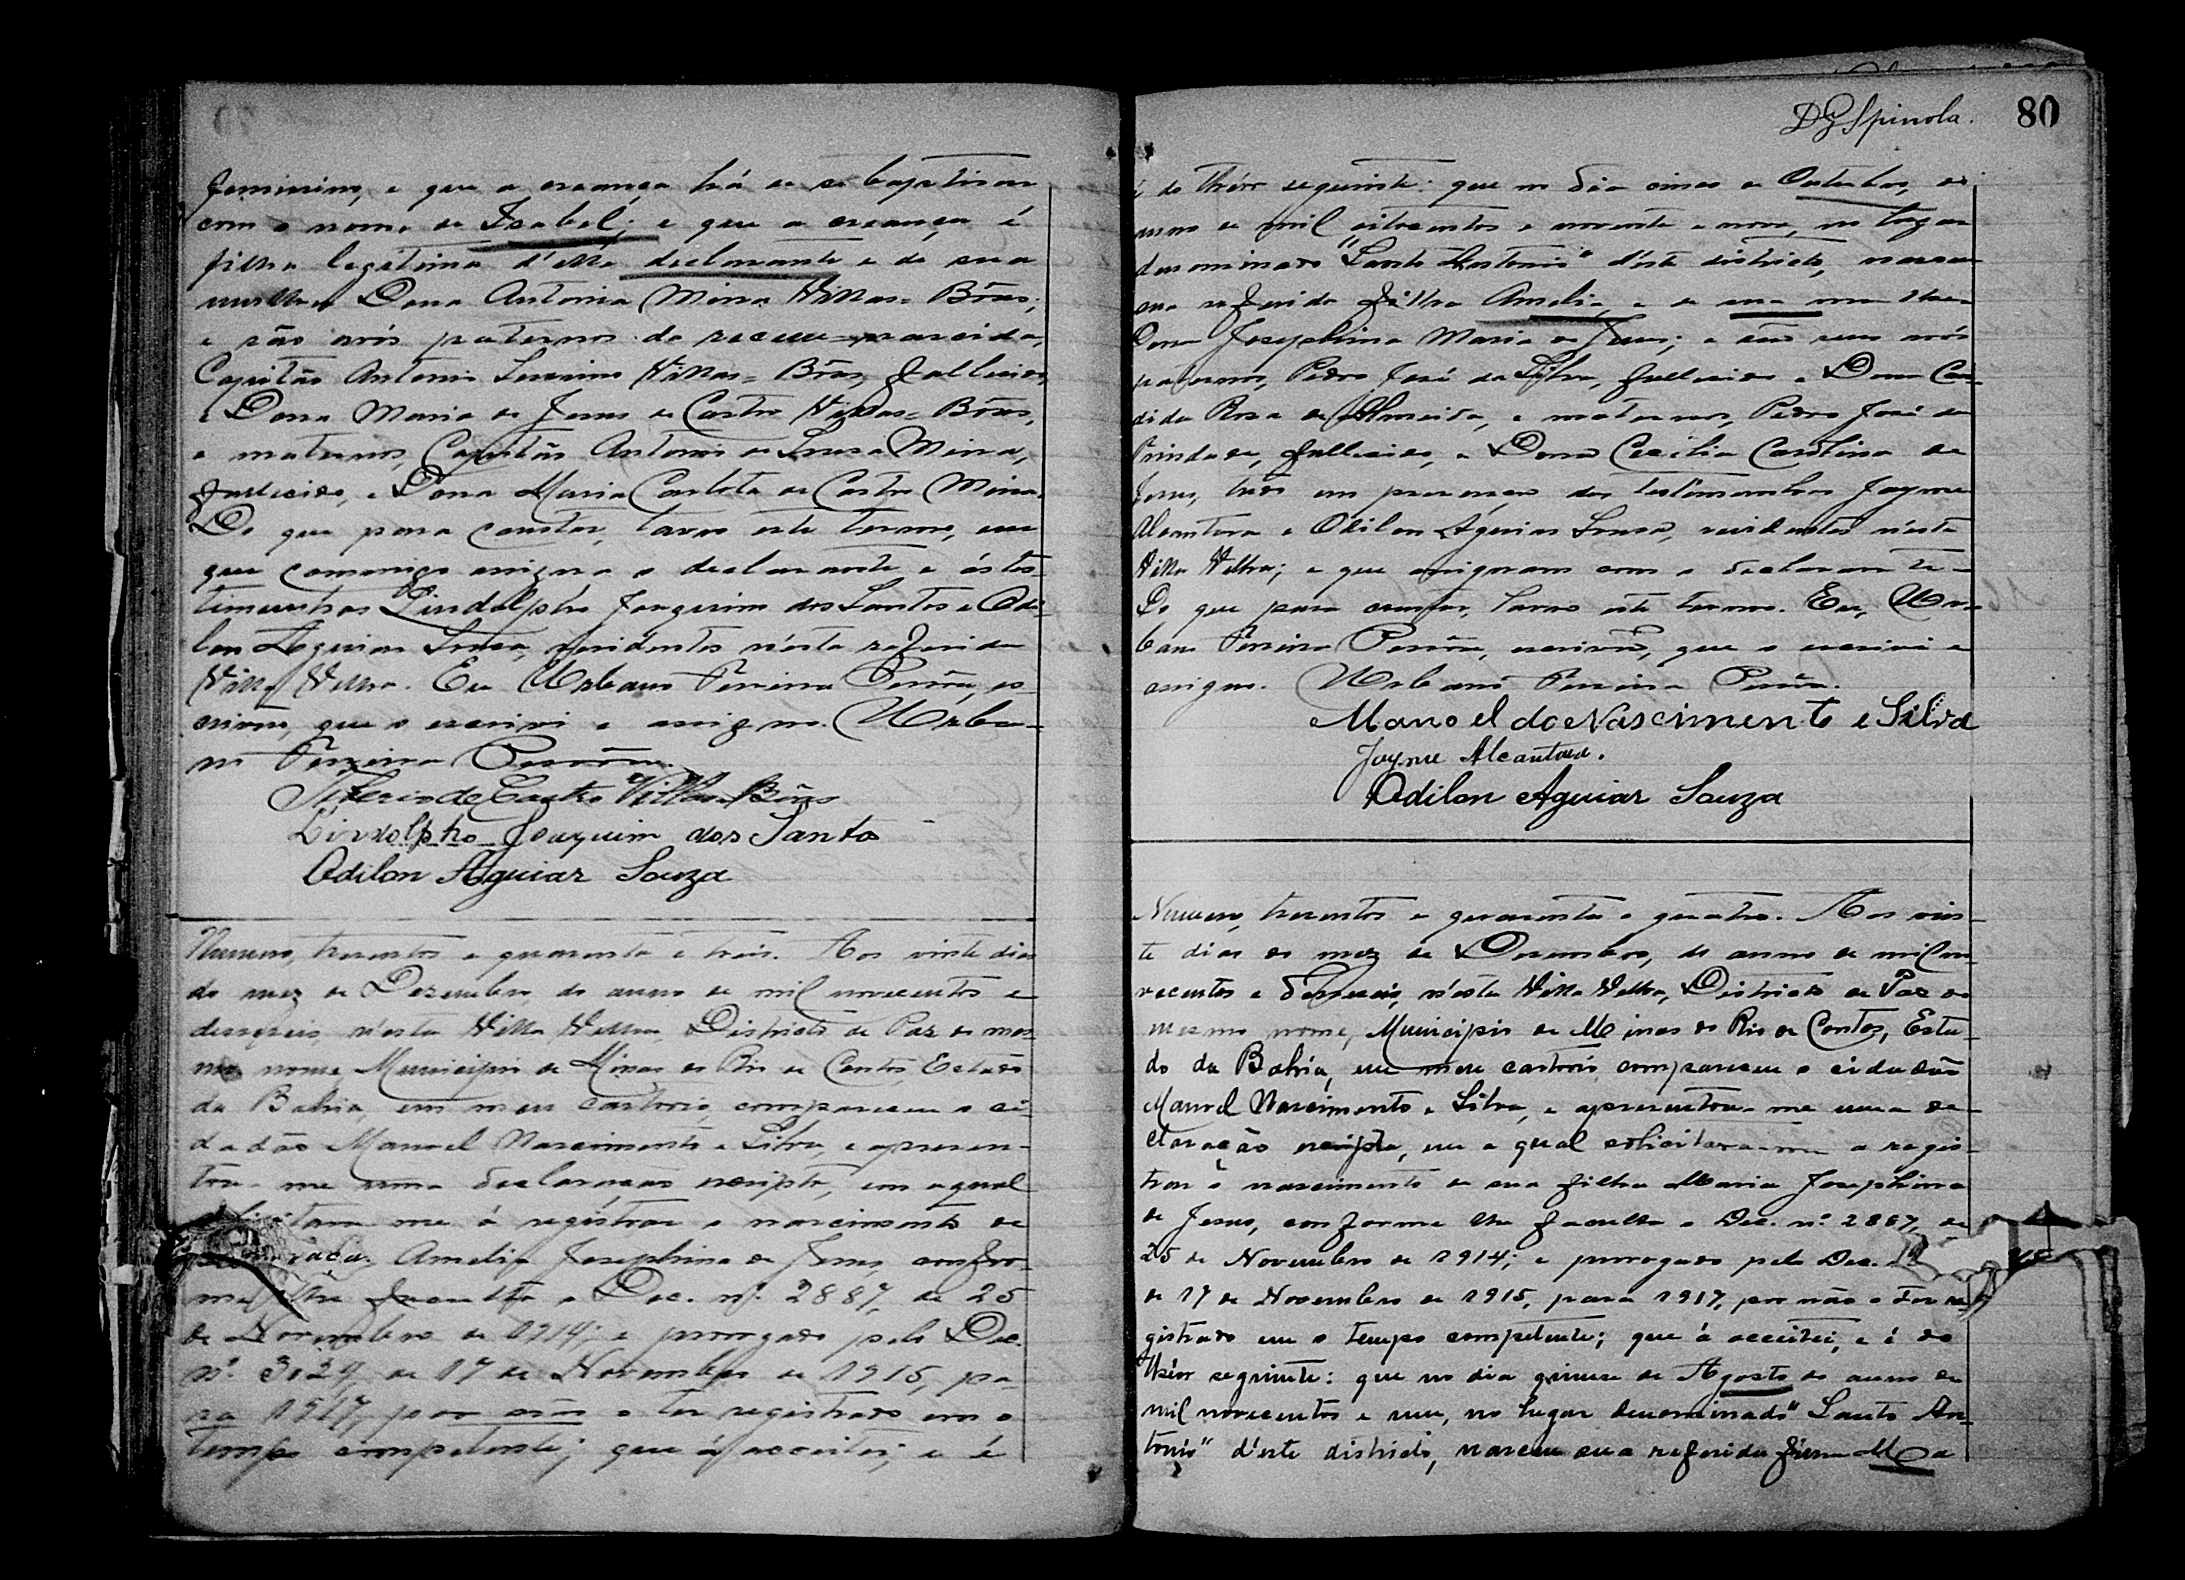 feminino, e que a creança há de se baptisar
com o nome de Isabel; e que a creança é
filha legitima d'elle declarante e de sua
mulher Dona Antonia Meira Villas=Bôas;
e são avós paternos da recem-nascida,
Capitão Antonio Severino Villas=Bôas, fallecido,
e Dona Maria de Jesus de Castro Villas=Bôas,
e maternos, Capitão Antonio de Sousa Meira,
fallecido, e Dona Maria Carlota de Castro Meira.
Do que para constar, lavro este termo, em
que commigo assigna o declarante e ás tes-
timunhas Lindolpho Joaquim dos Santos e Odi-
lon Aguiar Sousa, residentes n'esta referida
Villa Velha. Eu Urbano Pereira, es-
crivão, que o escrivi e assigno. Urba-
no Pereira
de Castro Villas Bôas
Lindolpho Joaquim dos Santo
Odilon Aguiar Souza
Numero, tresentos e quarenta e treis. Aos vinte dias
do mez de Dezembro, do anno de mil novecentos e
deseseis, n'esta Villa Velha, Districto de Paz do mes-
mo nome, Municipio de Minas do Rio de Contas, Estado
da Bahia, em meu cartorio, compareceu o ci-
dadão Manoel Nascimento e Silva, e apresen-
tou-me uma declaração escripta, em a qual
me á registrar o nascimento de
Amelia Josephina de Jesus, confor-
me lhe faculta o Dec. nº. 2887, de 25
de Novembro de 1914; e prorogado pelo Dec.
nº. 3029, de 17 de Novembro de 1915, pa-
ra 1917, por não o ter registrado em o
tempo competente; que á acceitei; e é
é do theôr seguinte: que no dia cinco de Outubro, do
anno de mil oitocentos e noventa e nove, no lugar
denominado "Santo Antonio" d'este districto, nasceu
sua referida filha Amelia, e de sua mulher
Dona Josephina Maria de Jesus; e são seus avós
paternos, Pedro José da Silva, fallecido e Dona Can-
dida Rosa de Almeida, e maternos, Pedro José da
Trindade, fallecido, e Dona Cecilia Carolina de
Jesus, tudo em presença das testimunhas Jayme
Alcantara e Odilon Aguiar Sousa, residentes n'esta
Villa Velha; e que assignam com o declarante.
Do que para constar, lavro este termo. Eu, Ur-
bano Pereira, escrivão, que o escrivi e
assigno. Urbano Pereira
Manoel do Nascimento e Silva
Jayme Alcantara.
Odilon Aguiar Souza
Numero, tresentos e quarenta e quatro. Aos vin-
te dias do mez de Dezembro, do anno de mil no-
vecentos e deseseis, n'esta Villa Velha, Districto de Paz do
mesmo nome, Municipio de Minas do Rio de Contas, Esta-
do da Bahia, em meu cartorio, compareceu o cidadão
Manoel Nascimento e Silva, e apresentou-me uma de-
claração escripta, em a qual solicitava-me a regis-
trar o nascimento de sua filha Maria Josephina
de Jesus, conforme lhe faculta o Dec. nº. 2887, de
25 de Novembro de 1914; e prorogado pelo Dec.
de 17 de Novembro de 1915, para 1917, por não o ter re-
gistrado em o tempo competente; que á acceitei, e é do
theôr seguinte: que no dia quinze de Agosto do anno de
mil novecentos e um, no lugar denominado "Santo An-
tonio" d'este districto, nasceu sua referida filha Ma
D G Spinola. 80